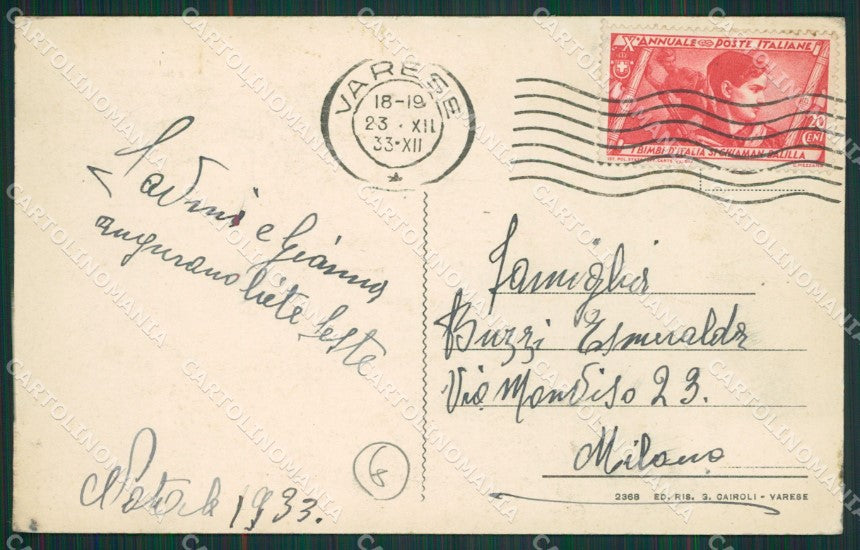 Xº ANNUALE POSTE ITALIANE
20
CENT
I BIMBI D'ITALIA SI CHIAMAN BALILLA
VARESE
18-19
23·XII
33·XII
e Gianna
augurano liete feste
Natale 1933.
6
Famiglia
Buzzi Esmeralda
Via Monviso 23.
Milano
2368 ED. RIS. G. CAIROLI - VARESE
CARTOLINOMANIA